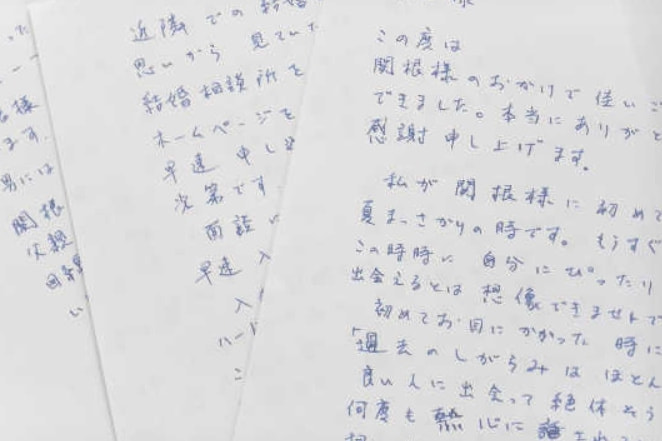 この度は
関根様のおかげで佳いご
できました。本当にありがと
感謝申し上げます。
私が関根様に初めて
夏まっさかりの時です。もうすぐ
この時時に自分にぴったり
出会えるとは想像できませんで
初めてお目にかかった時に
「過去のしがらみはほとん
良い人に出会って絶体そう
何度も熱心に
近隣での
思いから見てい
結婚相談所を
ホームページを
早速申し込
次第です
面談に
早速入
入
ハード
こ
様
ます。
男には
関根